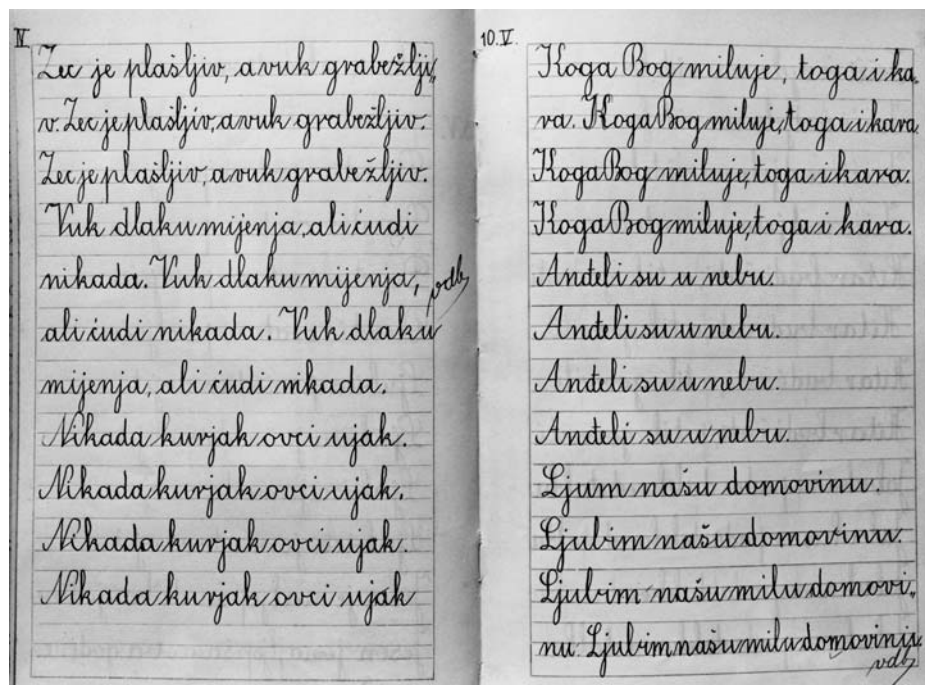 IV
Zec je plašljiv, a vuk grabežlji„
v. Zec je plašljiv, a vuk grabežljiv.
Zec je plašljiv, a vuk grabežljiv.
Vuk dlaku mijenja, ali ćudi
nikada. Vuk dlaku mijenja,
ali ćudi nikada. Vuk dlaku
mijenja, ali ćudi nikada.
Nikada kurjak ovci ujak.
Nikada kurjak ovci ujak.
Nikada kurjak ovci ujak.
Nikada kurjak ovci ujak
10. V.
Koga Bog miluje, toga i ka„
ra. Koga Bog miluje, toga i kara.
Koga Bog miluje, toga i kara.
Koga Bog miluje, toga i kara.
Anđeli su u nebu.
Anđeli su u nebu.
Anđeli su u nebu.
Anđeli su u nebu.
Ljum našu domovinu.
Ljubim našu domovinu.
Ljubim našu milu domovi„
nu. Ljubim našu milu domovinu.